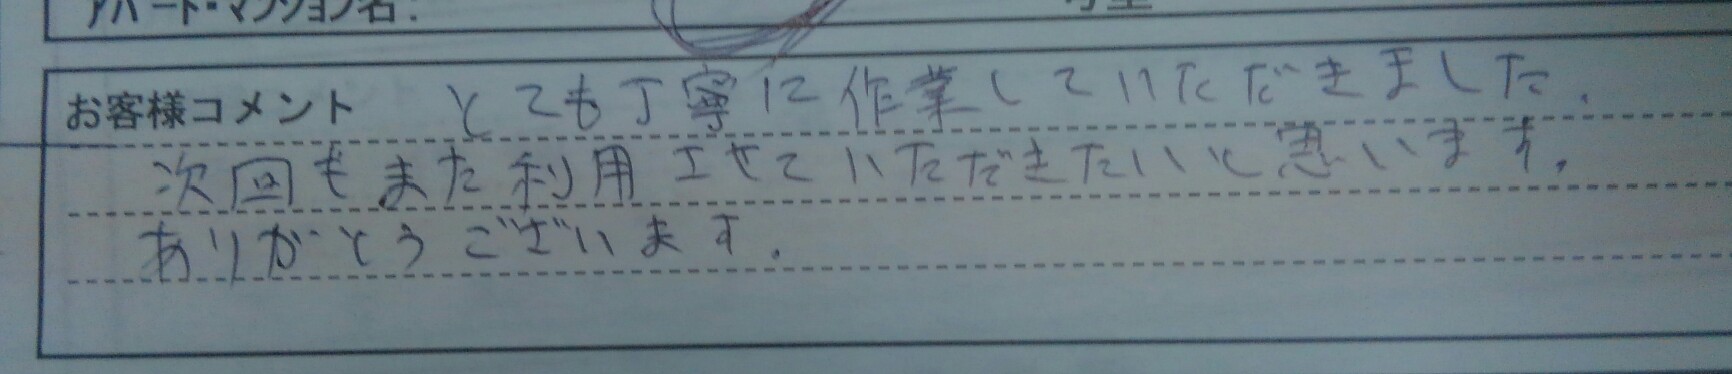 アパート・マンション名:
お客様コメント とても丁寧に作業していただきました.
次回もまた利用させていただきたいと思います.
ありがとうございます.